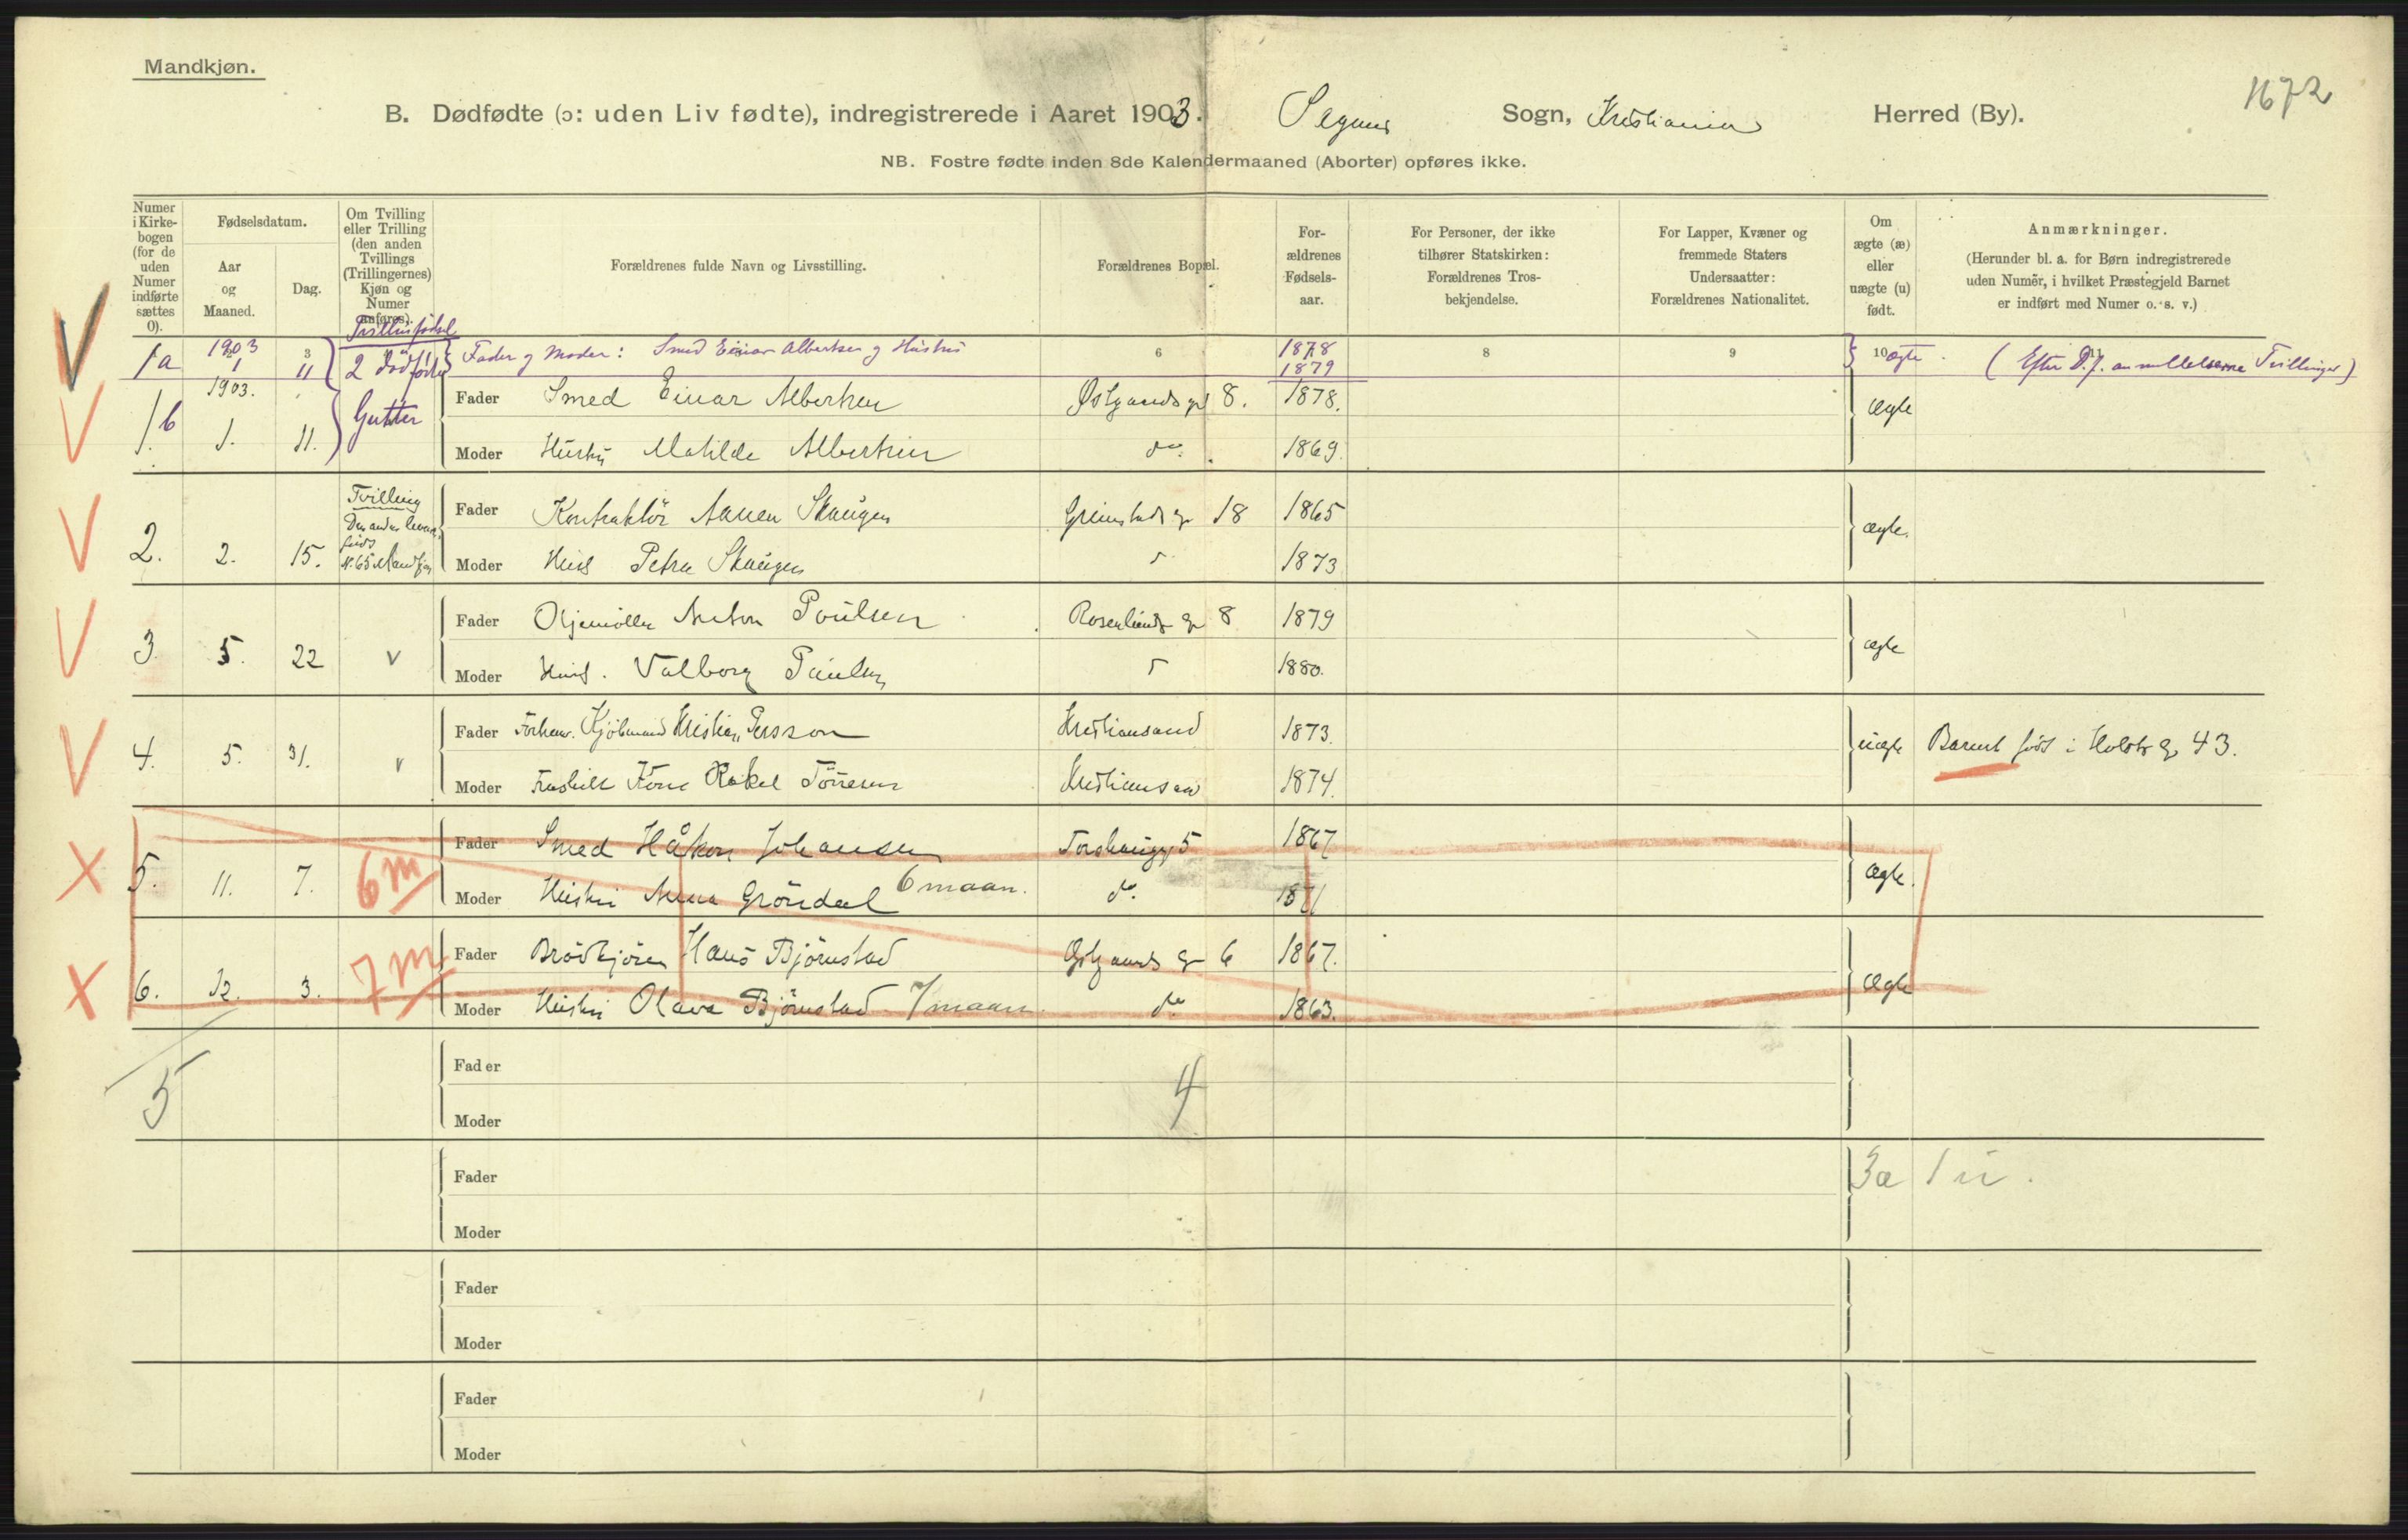 Mandkjøn.
1672
B. Dødfødte (ɔ: uden Liv fødte), indregistrerede i Aaret 1903. Sogn, Kristiania Herred (By).
NB. Fostre fødte inden 8de Kalendermaaned (Aborter) opføres ikke.
Numer i Kirke-bogen (for de uden Numer indførte sættes 0).
Fødselsdatum.
Aar og Maaned.
Dag.
Om Tvilling eller Trilling (den anden Tvillings (Trillingernes) Kjøn og Numer anføres).
Forældrenes fulde Navn og Livsstilling.
Forældrenes Bopæl.
For-ældrenes Fødsels-aar.
For Personer, der ikke tilhører Statskirken: Forældrenes Tros-bekjendelse.
For Lapper, Kvæner og fremmede Staters Undersaatter: Forældrenes Nationalitet.
Om ægte (æ) eller uægte (u) født.
Anmærkninger.
(Herunder bl. a. for Børn indregistrerede uden Numer, i hvilket Præstegjeld Barnet er indført med Numer o. s. v.)
3 6 8 9 10
1a 1903 1 11 2 dødfødte Fader og Moder: Smed Einar Albertsen og Hustru 1878 1879 ægte (Efter D.f. anmeldelserne Tvillinger)
1b 1903. 1. 11. Gutter Fader Smed Einar Albertsen 8. 1878. Ægte
Moder Hustru Matilde Albertsen do. 1869.
2. 2. 15. Tvilling Den anden levende født N. 65 Mandkjøn
Fader Kontraktör Skaugen Grimstads g 18 1865 ægte.
Moder Hust Petra Skaugen 1873
3 5. 22 v Fader Anton Paulsen Rosenlunds g 8 1879 ægte
Moder Hust. Valborg Paulsen 1880.
4. 5. 31. v Fader Forhenv. Kjöbmand Kristian Persson Kristiansand 1873. uægte Barnet født i Holsts g 43.
Moder Rakel Kristiansand 1874.
5. 11. 7. 6m Fader Smed Håkon Johansen Torshauggt 5 1867 Ægte.
Moder Hustru Anna Gröndal 6 maan. do. 1871
6. 12. 3. 7m Fader Brödkjörer Hans Björnstad 6 1867. Ægte
Moder Hustru Olava Björnstad 7 maan. do 1863.
5 Fader 4
Moder
Fader 3æ 1u.
Moder
Fader
Moder
Fader
Moder